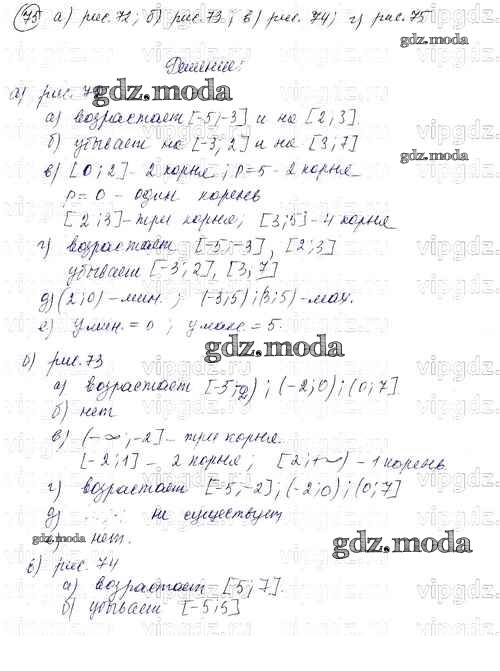 75 а) рис. 72; б) рис. 73; в) рис. 74; г) рис. 75
Решение:
а) рис. 72
а) возрастает [-5;-3] и на [2;3].
б) убывает на [-3;2] и на [3;7]
в) [0;2] - 2 корня; p=5 - 2 корня
p=0 - один корень
[2;3] - три корня; [3;5] - 4 корня
г) возрастает [-5;-3], [2;3]
убывает [-3;2], [3,7]
д) (2;0) - мин.; (-3;5);(3;5) - мах.
е) y мин. = 0; y макс. = 5.
б) рис. 73
а) возрастает [-5;-2); (-2;0); (0;7]
б) нет
в) (-∞;-2] - три корня.
[-2;1] - 2 корня; [2;+∞) - 1 корень
г) возрастает [-5,-2]; (-2;0); (0;7]
д) не существует
нет.
в) рис. 74
а) возрастает [5;7].
б) убывает [-5;5]
gdz.moda
gdz.moda
gdz.moda
gdz.moda
gdz.moda
gdz.moda
vipgdz